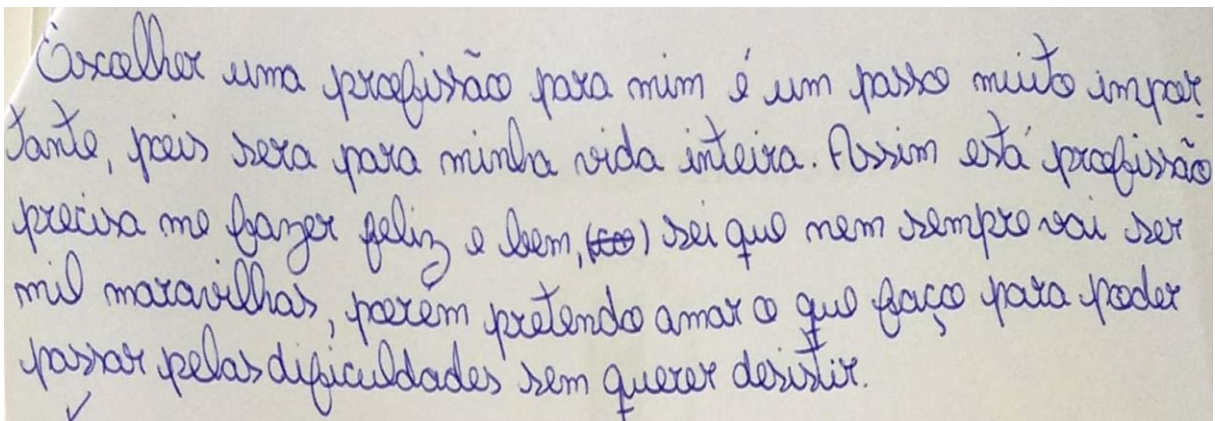 Escolher uma profissão para mim é um passo muito impor
tante, pois sera para minha vida inteira. Assim está profissão
precisa me fazer feliz e bem, sei que nem sempre vai ser
mil maravilhas, porém pretendo amar o que faço para poder
passar pelas dificuldades sem querer desistir.